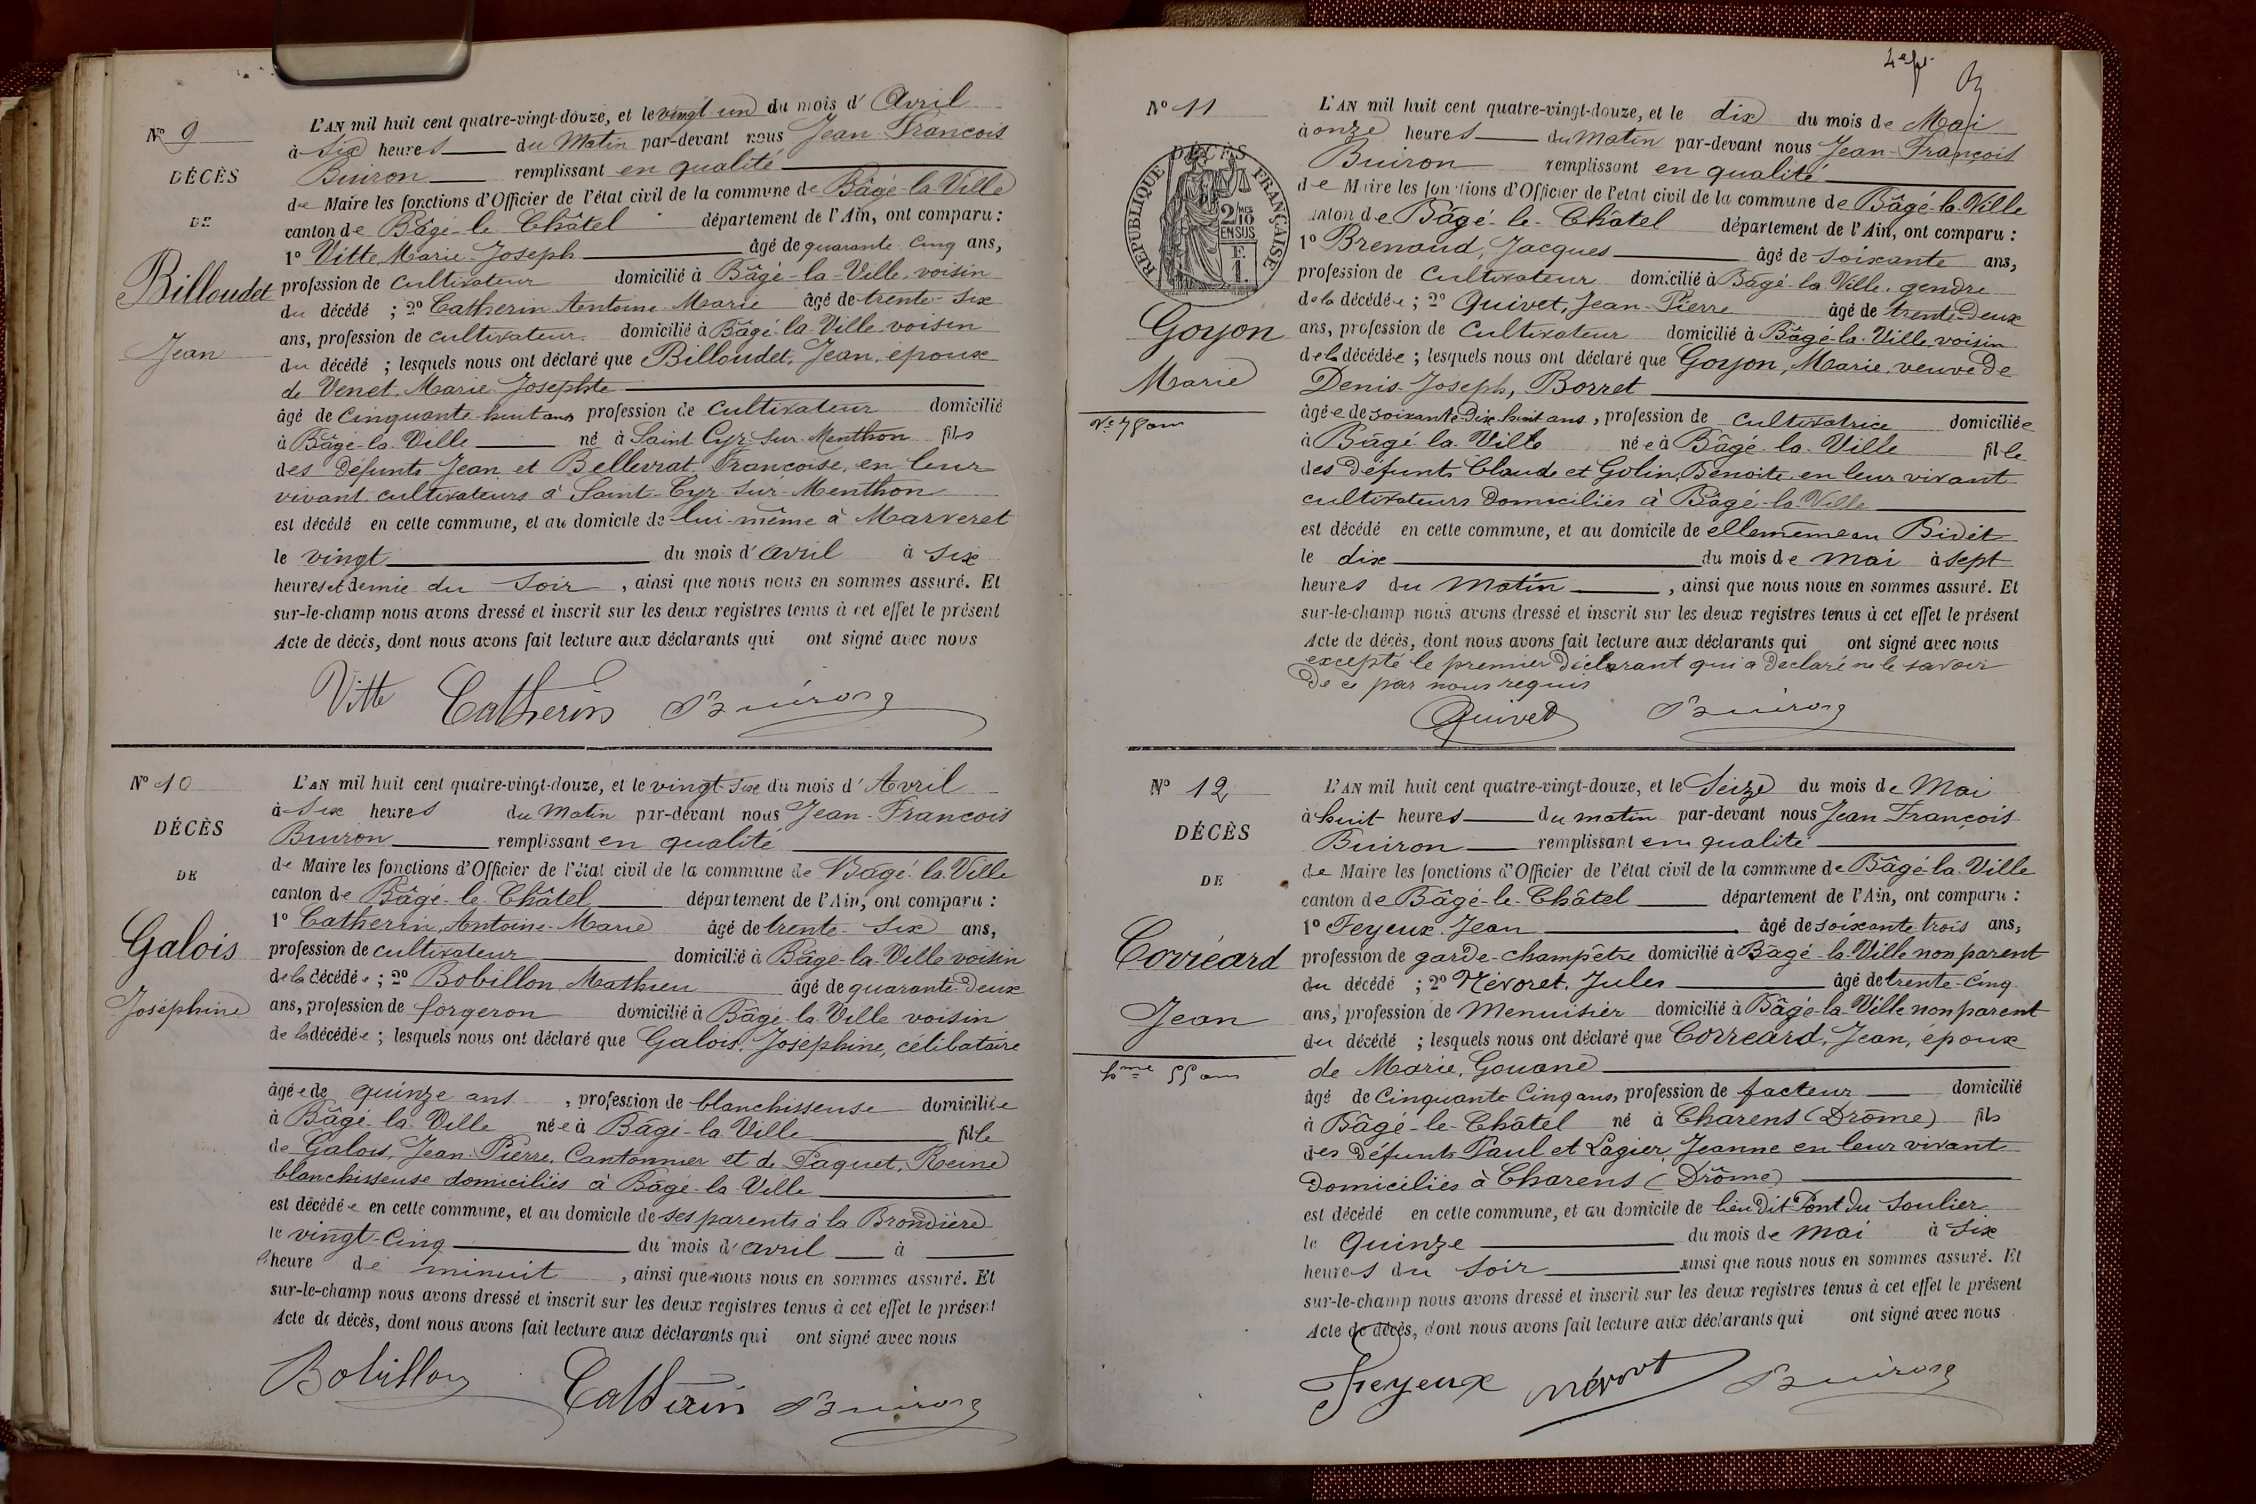 Nº 9
DÉCÈS
DE
Billoudet
Jean
L'AN mil huit cent quatre-vingt-douze, et le vingt un du mois d'Avril
à six heures du Matin par-devant nous Jean-François
Buiron remplissant en qualité
de Maire les fonctions d'Officier de l'état civil de la commune de Bâgé-la-Ville
canton de Bâgé-le-Châtel département de l'Ain, ont comparu :
1º Vitte, Marie-Joseph âgé de quarante-cinq ans,
profession de cultivateur domicilié à Bâgé-la-Ville, voisin
du décédé ; 2º Catherin Antoine-Marie âgé de trente-six
ans, profession de cultivateur domicilié à Bâgé-la-Ville voisin
du décédé ; lesquels nous ont déclaré que Billoudet, Jean, époux
de Venet, Marie-Josephte
âgé de cinquante-huit ans profession de cultivateur domicilié
à Bâgé-la-Ville né à Saint-Cyr-sur-Menthon fils
des défunts Jean et Bellevrat Françoise, en leur
vivant cultivateurs à Saint-Cyr-sur-Menthon
est décédé en cette commune, et au domicile de lui-même à Marveret
le vingt du mois d'avril à six
heures et demie du soir, ainsi que nous nous en sommes assuré. Et
sur-le-champ nous avons dressé et inscrit sur les deux registres tenus à cet effet le présent
Acte de décès, dont nous avons fait lecture aux déclarants qui ont signé avec nous
Vitte Catherin Buiron
Nº 10
DÉCÈS
DE
Galois
Joséphine
L'AN mil huit cent quatre-vingt-douze, et le vingt-six du mois d'Avril
à six heures du Matin par-devant nous Jean-François
Buiron remplissant en qualité
de Maire les fonctions d'Officier de l'état civil de la commune de Bâgé-la-Ville
canton de Bâgé-le-Châtel département de l'Ain, ont comparu :
1º Catherin, Antoine-Marie âgé de trente-six ans,
profession de cultivateur domicilié à Bâgé-la-Ville voisin
de la décédée ; 2º Bobillon Mathieu âgé de quarante-deux
ans, profession de forgeron domicilié à Bâgé-la-Ville voisin
de la décédée ; lesquels nous ont déclaré que Galois, Joséphine, célibataire
âgée de quinze ans, profession de blanchisseuse domiciliée
à Bâgé-la-Ville née à Bâgé-la-Ville fille
de Galois, Jean-Pierre, Cantonnier et de Paquet, Reine
blanchisseuse domiciliés à Bâgé-la-Ville
est décédée en cette commune, et au domicile de ses parents à la Brondière
le vingt-cinq du mois d'avril à
heure de minuit, ainsi que nous nous en sommes assuré. Et
sur-le-champ nous avons dressé et inscrit sur les deux registres tenus à cet effet le présent
Acte de décès, dont nous avons fait lecture aux déclarants qui ont signé avec nous
Bobillon Catherin Buiron
Nº 11
DÉCÈS
RÉPUBLIQUE FRANÇAISE
2/10 MES
EN SUS
1 F.
Goyon
Marie
Ve 78 ans
L'AN mil huit cent quatre-vingt-douze, et le dix du mois de Mai
à onze heures du Matin par-devant nous Jean-François
Buiron remplissant en qualité
de Maire les fonctions d'Officier de l'état civil de la commune de Bâgé-la-Ville
canton de Bâgé-le-Châtel département de l'Ain, ont comparu :
1º Brenaud, Jacques âgé de soixante ans,
profession de cultivateur domicilié à Bâgé-la-Ville, gendre
de la décédée ; 2º Quivet, Jean-Pierre âgé de trente-deux
ans, profession de cultivateur domicilié à Bâgé-la-Ville voisin
de la décédée ; lesquels nous ont déclaré que Goyon, Marie, veuve de
Denis-Joseph, Borret
âgée de soixante-dix-huit ans, profession de cultivatrice domiciliée
à Bâgé-la-Ville née à Bâgé-la-Ville fille
des défunts Claude et Golin, Benoite en leur vivant
cultivateurs domiciliés à Bâgé-la-Ville
est décédé en cette commune, et au domicile de elle même au Bidet
le dix du mois de mai à sept
heures du Matin, ainsi que nous nous en sommes assuré. Et
sur-le-champ nous avons dressé et inscrit sur les deux registres tenus à cet effet le présent
Acte de décès, dont nous avons fait lecture aux déclarants qui ont signé avec nous
excepté le premier déclarant qui a déclaré ne le savoir
de ce par nous requis
Quivet Buiron
Nº 12
DÉCÈS
DE
Corréard
Jean
hme 55 ans
L'AN mil huit cent quatre-vingt-douze, et le Seize du mois de Mai
à huit heures du matin par-devant nous Jean François
Buiron remplissant en qualité
de Maire les fonctions d'Officier de l'état civil de la commune de Bâgé-la-Ville
canton de Bâgé-le-Châtel département de l'Ain, ont comparu :
1º Feyeux, Jean âgé de soixante trois ans,
profession de garde-champêtre domicilié à Bâgé-la-Ville non parent
du décédé ; 2º Névoret, Jules âgé de trente-cinq
ans, profession de Menuisier domicilié à Bâgé-la-Ville non parent
du décédé ; lesquels nous ont déclaré que Corréard, Jean, époux
de Marie, Gouane
âgé de cinquante cinq ans, profession de facteur domicilié
à Bâgé-le-Châtel né à Charens (Drôme) fils
des défunts Paul et Lagier, Jeanne en leur vivant
domiciliés à Charens (Drôme)
est décédé en cette commune, et au domicile de lieu dit Pont du Soulier
le Quinze du mois de mai à six
heures du soir ainsi que nous nous en sommes assuré. Et
sur-le-champ nous avons dressé et inscrit sur les deux registres tenus à cet effet le présent
Acte de décès, dont nous avons fait lecture aux déclarants qui ont signé avec nous
Feyeux Névoret Buiron